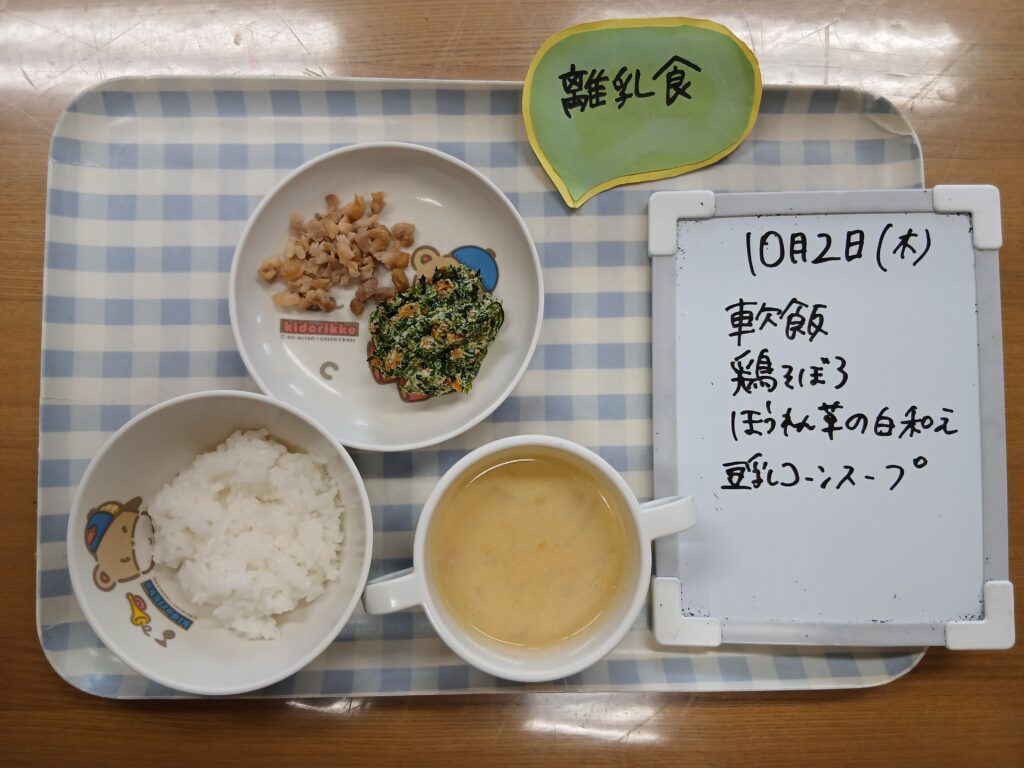 離乳食
10月2日(木)
軟飯
鶏そぼろ
ほうれん草の白和え
豆乳コーンスープ
kidorikko